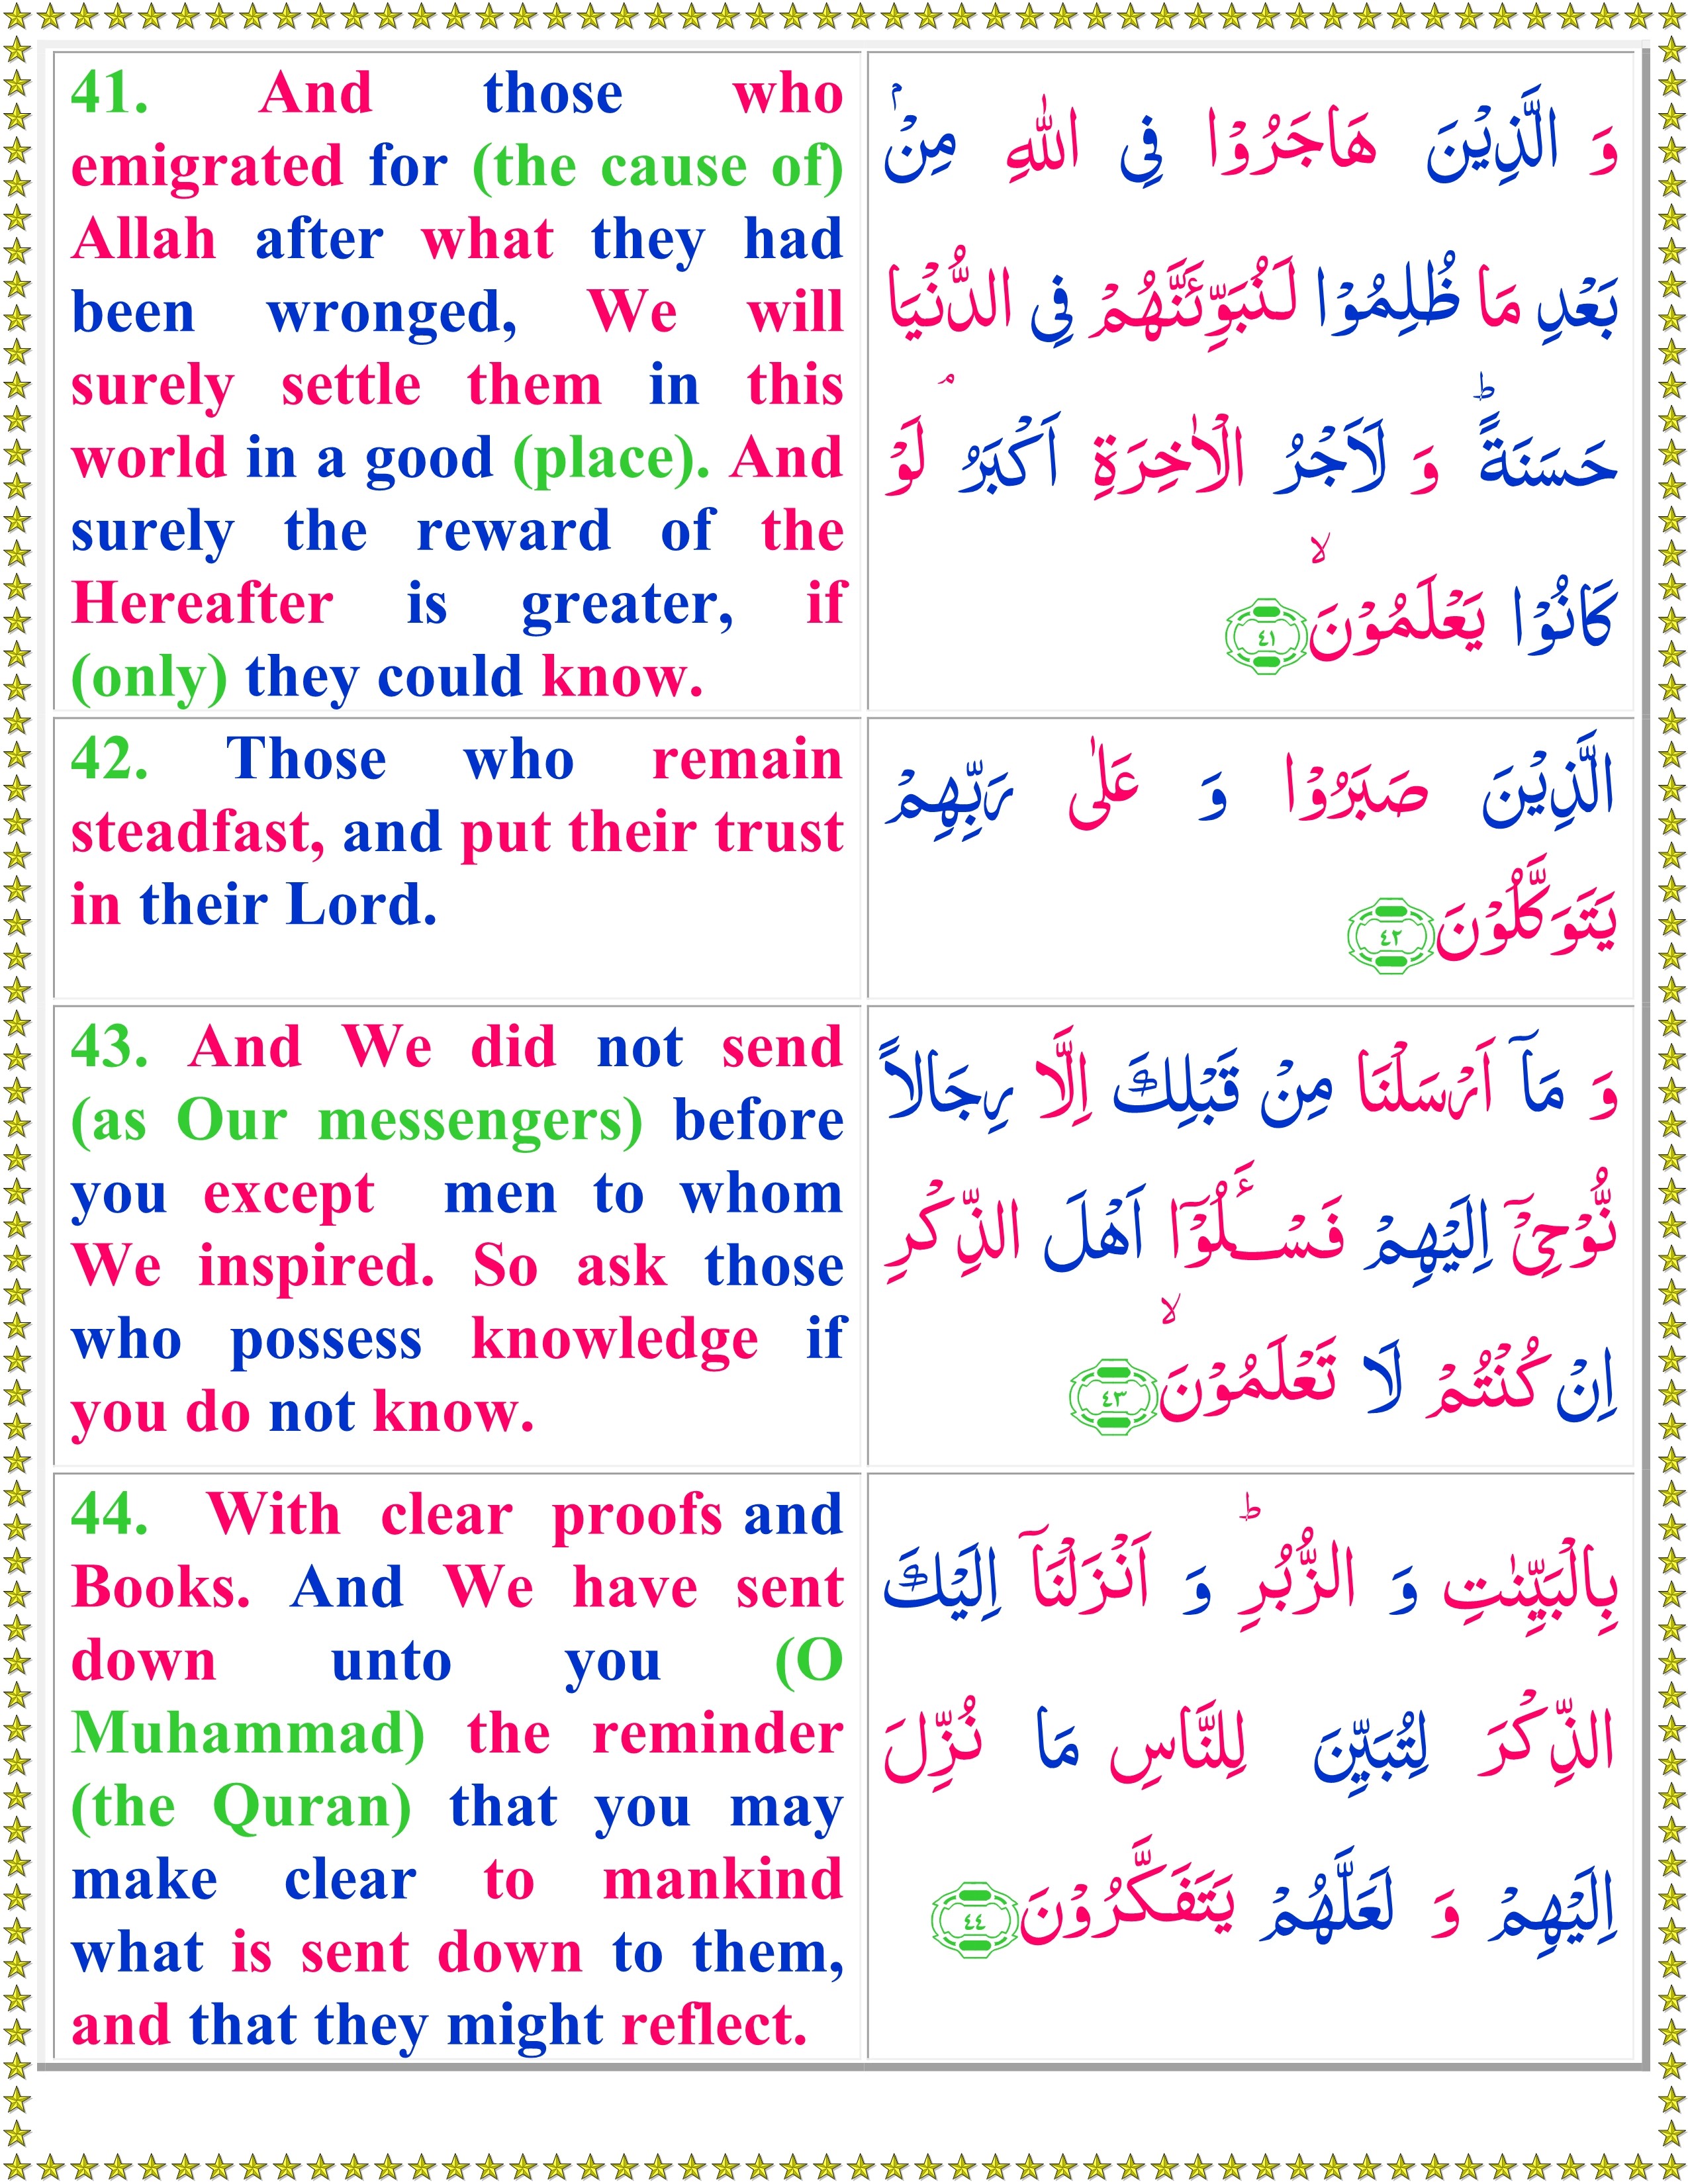 41. And those who
emigrated for (the cause of)
Allah after what they had
been wronged, We will
surely settle them in this
world in a good (place). And
surely the reward of the
Hereafter is greater, if
(only) they could know.
وَ الَّذِيْنَ هَاجَرُوْا فِى اللّٰهِ مِنْۢ
بَعْدِ مَا ظُلِمُوْا لَـنُبَوِّئَنَّهُمْ فِى الدُّنْيَا
حَسَنَةً‌ ؕ وَ لَاَجْرُ الْاٰخِرَةِ اَكْبَرُ‌ۘ لَوْ
كَانُوْا يَعْلَمُوْنَۙ‏ ٤١
42. Those who remain
steadfast, and put their trust
in their Lord.
الَّذِيْنَ صَبَرُوْا وَ عَلٰى رَبِّهِمْ
يَتَوَكَّلُوْنَ ٤٢
43. And We did not send
(as Our messengers) before
you except men to whom
We inspired. So ask those
who possess knowledge if
you do not know.
وَ مَاۤ اَرْسَلْنَا مِنْ قَبْلِكَ اِلَّا رِجَالاً
نُّوْحِىْۤ اِلَيْهِمْ‌ فَسْـــَٔلُوْۤا اَهْلَ الذِّكْرِ
اِنْ كُنْتُمْ لَا تَعْلَمُوْنَۙ‏ ٤٣
44. With clear proofs and
Books. And We have sent
down unto you (O
Muhammad) the reminder
(the Quran) that you may
make clear to mankind
what is sent down to them,
and that they might reflect.
بِالْبَيِّنٰتِ وَ الزُّبُرِ‌ؕ وَ اَنْزَلْنَاۤ اِلَيْكَ
الذِّكْرَ لِتُبَيِّنَ لِلنَّاسِ مَا نُزِّلَ
اِلَيْهِمْ وَ لَعَلَّهُمْ يَتَفَكَّرُوْنَ ٤٤